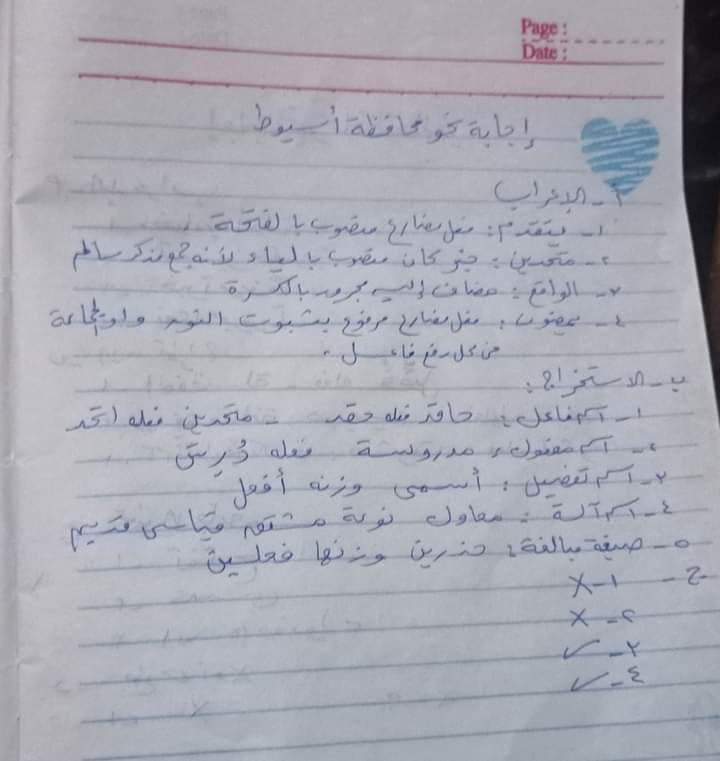 Page :
Date :
إجابة نحو محافظة أسيوط
أ - الإعراب
١- يتقدم : فعل مضارع منصوب بالفتحة
٢- متحدين : خبر كان منصوب بالياء لأنه جمع مذكر سالم
٣- الواقع : مضاف إليه مجرور بالكسرة
٤- يمضون : فعل مضارع مرفوع بثبوت النون واو الجماعة
فى محل رفع فاعل .
ب - الاستخراج :
١- اسم فاعل : حاقد فعله حقد - متحدين فعله اتحد
٢- اسم مفعول : مدروسة فعله دُرِسَ
٣- اسم تفضيل : أسمى وزنه أفعل
٤- اسم آلة : معاول نوعه مشتق قياسى قديم
٥- صيغة مبالغة : حذرين وزنها فعلين
ج - ١- X
٢- X
٣- ✓
٤- ✓